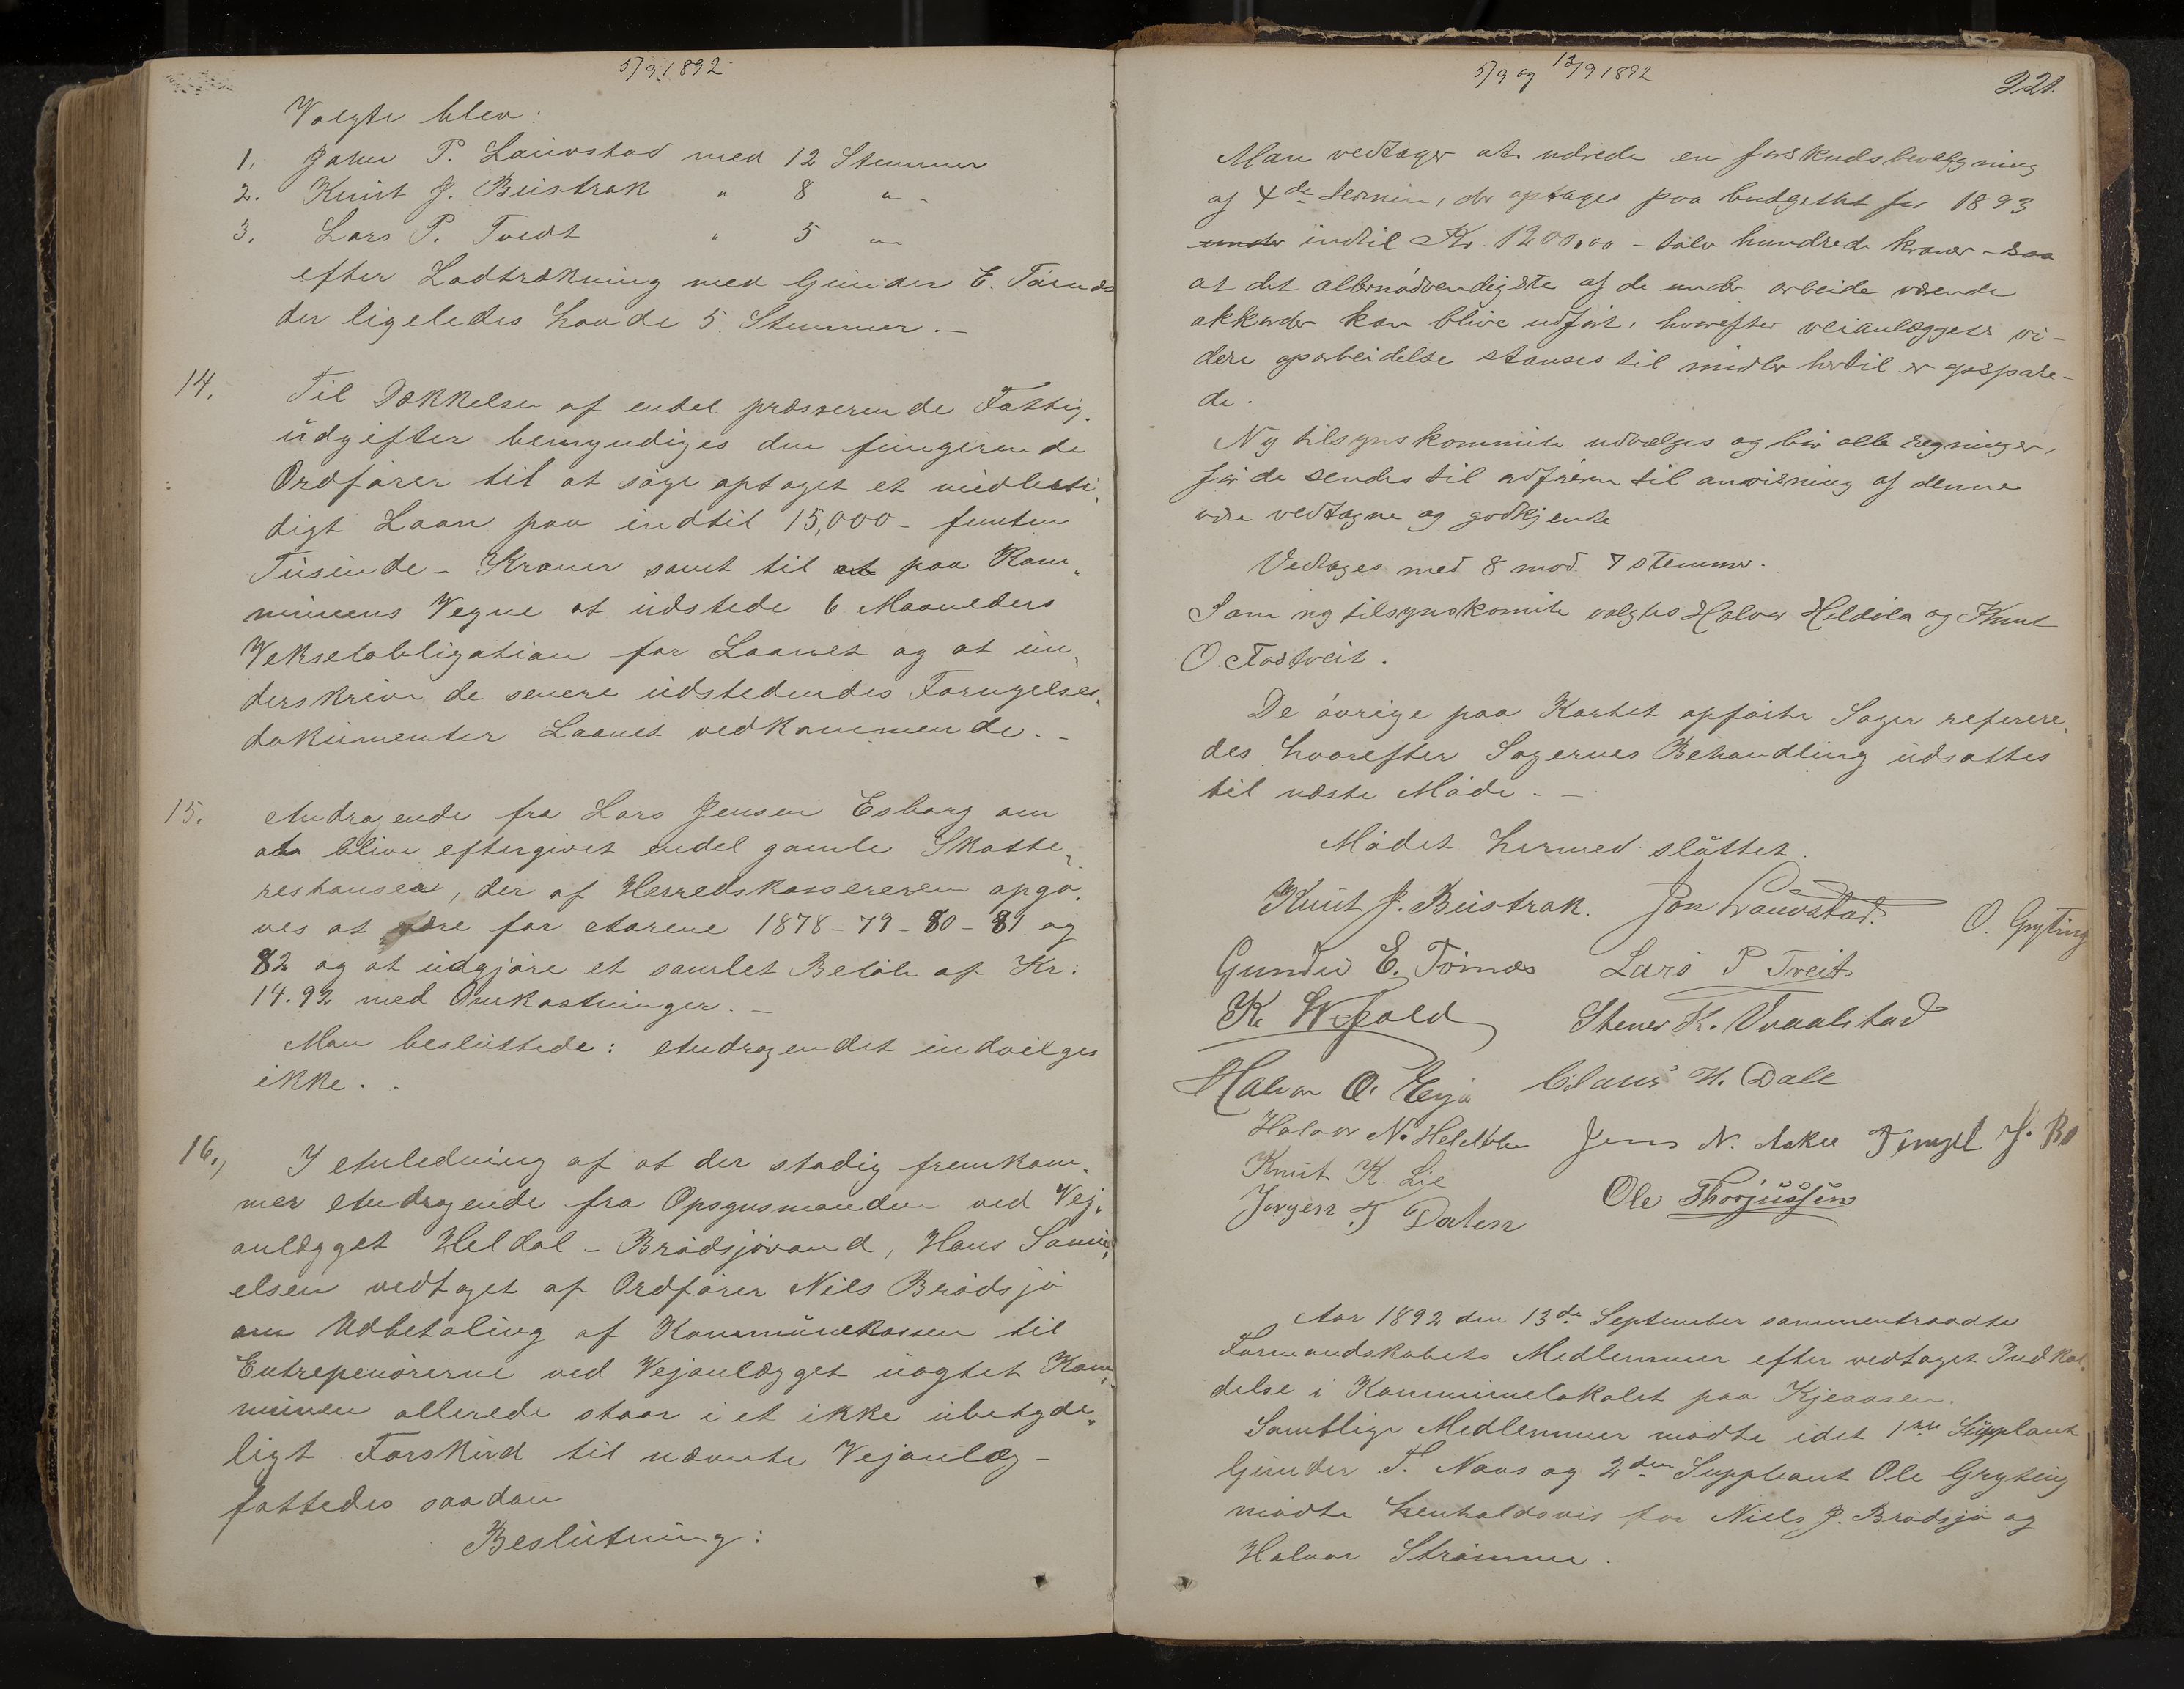 5/9 1892
Valgte blev:
1. John P. Lauvstad med 12 Stemmer
2. Knut J. Bustrak " 8 " -
3. Lars P. Tvedt " 5 "
efter Lodtrækning med Gunder E. Tørnæs
der ligeledes havde 5 Stemmer. -
14. Til Dækkelse af endel presserende Fattig-
udgifter bemyndiges den fungerende
Ordfører til at søge optaget et midlerti-
digt Laan paa indtil 15,000 - femten
Tusinde - Kroner samt til at paa Kom-
munens Vegne at udstede 6 Maaneders
Vekselobligation for Laanet og at un-
derskrive de senere udstedendes Fornyelses-
dokumenter Laanet vedkommende. -
15. Andragende fra Lars Jensen Esborg om
at blive eftergivet endel gamle Skatte-
restanser, der af Herredskassereren opgi-
ves at være for Aarene 1878 - 79 - 80 - 81 og
82 og at udgjøre et samlet Beløb af Kr:
14.92 med Omkostninger. -
Man besluttede: Andragendet indvilges
ikke. -
16., I Anledning af at der stadig fremkom-
mer Andragende fra Opsynsmanden ved Vej-
anlægget Heldal - Brødsjøvand, Hans Samu-
elsen vedtaget af Ordfører Nils Brødsjø
om Udbetaling af Kommunekassen til
Entrepenørerne ved Vejanlægget uagtet Kom-
munen allerede staar i et ikke ubetyde-
ligt Forskud til nævnte Vejanlæg -
fattedes saadan
Beslutning:
5/9 og 13/9 1892
221.
Man vedtager at udrede en forskudsbevilgning
af 4de termin, der optages paa budgettet for 1893
under indtil Kr. 1200,00 - tolv hundrede kroner - saa
at det allernødvendigste af de under arbeide værende
akkorder kan blive udført, hvorefter veianlæggets vi-
dere oparbeidelse stanses til midler hertil er opspare-
de.
Ny tilsynskommite udvælges og bør alle regninger,
før de sendes til ordføreren til anvisning af denne
være vedtagne og godkjente
Vedtages med 8 mod 7 stemmer.
Som ny tilsynskomite valgtes Halvor Heldøla og Knut
O. Tostveit.
De øvrige paa Kartet opførte Sager referere-
des hvorefter Sagernes Behandling udsattes
til næste Møde. -
Mødet hermed sluttet.
Knut J. Bustrak. Jon Lauvstad. O. Gryting
Gunder E. Tørnæs Lars P Tveit
K Wefald Stener K. Vraalstad
Halvor O. Eyjo Claus H. Dale
Halvor N. Heldøla Jens N. Aakre Tengel J. Bø
Knut K. Lie
Jørgen T Dalen Ole Thorjussen
Aar 1892 den 13de September sammentraadte
Formandskabets Medlemmer efter vedtaget Indkal-
delse i Kommunelokalet paa Kjeaasen.
Samtlige Medlemmer mødte idet 1ste Supplant
Gunder T. Naas og 2den Suppleant Ole Gryting
mødte henholdsvis for Niels J. Brødsjø og
Halvor Strømme.